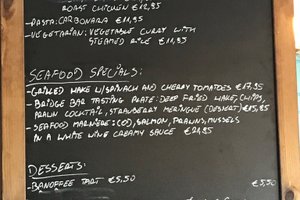 ROAST CHICKEN €12,95
- PASTA: CARBONARA €11,95
- VEGETARIAN: VEGETABLE CURRY WITH
STEAMED RICE €11,95
SEAFOOD SPECIALS:
- GRILLED HAKE W/SPINACH AND CHERRY TOMATOES €17,95
- BRIDGE BAR TASTING PLATE: DEEP FRIED HAKE, CHIPS,
PRAWN COCKTAIL, STRAWBERRY MERINGUE (DESSERT) €15,95
- SEAFOOD MARINÈRE: COD, SALMON, PRAWNS, MUSSELS
IN A WHITE WINE CREAMY SAUCE €21,95
DESSERTS:
- BANOFFEE TART €5,50
€5,50